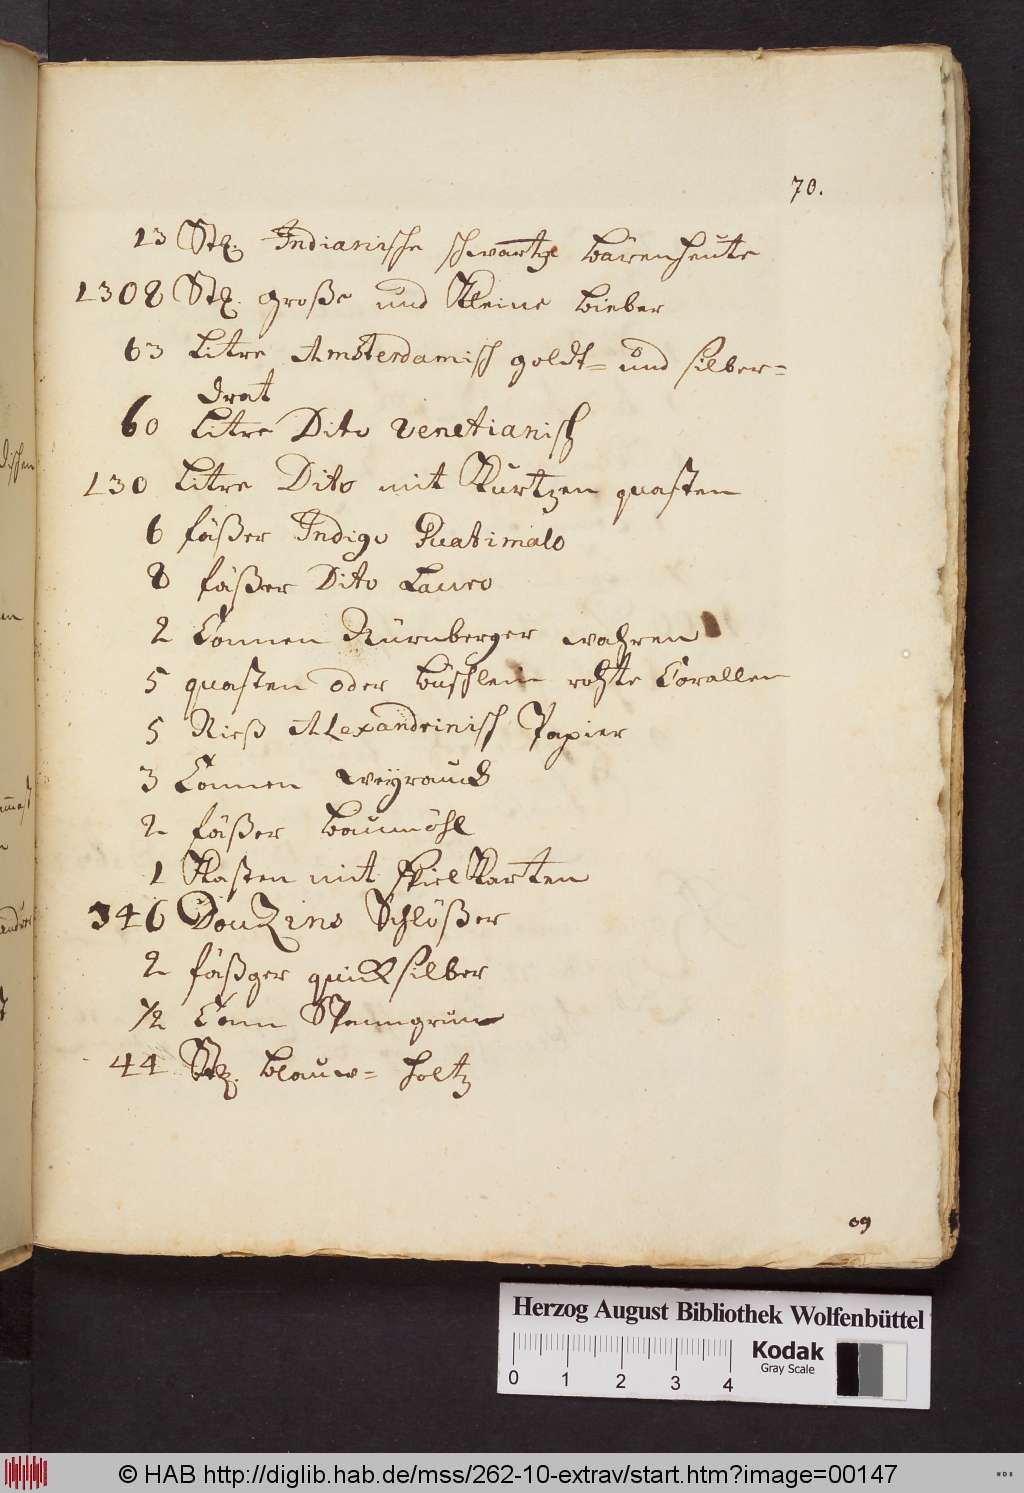 70.
13 Stck. Indianische schwartze bärenheute
1308 Stck. große und Kleine bieber
63 Litre Amsterdamisch goldt= und silber=
drat
60 Litre Dito venetianisch
130 Litre Dito mit Kurtzen quasten
6 fäßer Indigo Guatimalo
8 fäßer Dito Lauro
2 Tonnen Nürnberger wahren
5 quasten oder büschlein rohte Corallen
5 Rieß Alexandrinisch Papier
3 Tonnen weyrauch
2 fäßer baumöhl
1 Kasten mit spiel Karten
346 Douzins Schlößer
2 fäßger quicksilber
1/2 Tonn Spanngrün
44 Stck. blauw= holtz
09
Herzog August Bibliothek Wolfenbüttel
Kodak
Gray Scale
0 1 2 3 4
© HAB http://diglib.hab.de/mss/262-10-extrav/start.htm?image=00147